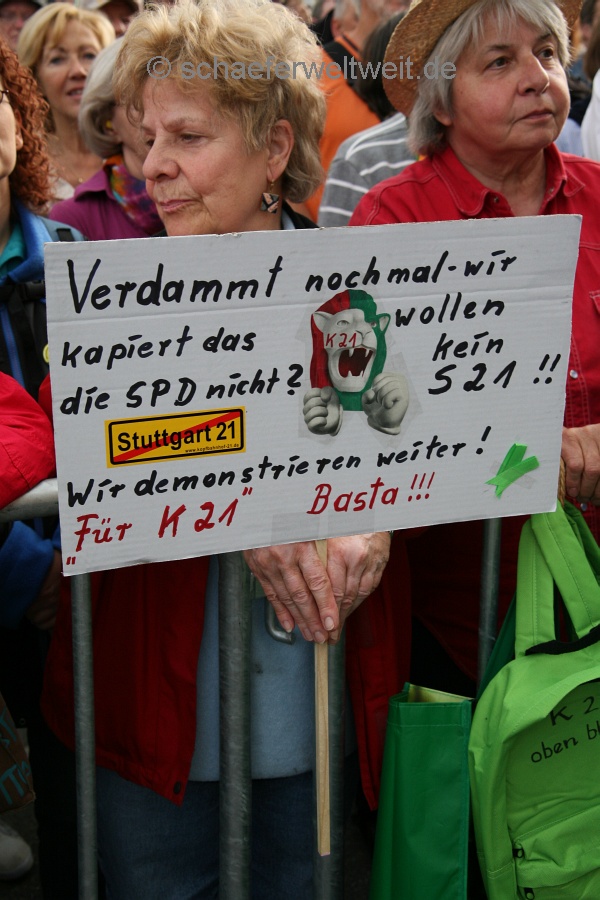 © schaeferweltweit.de
Verdammt nochmal-wir
kapiert das wollen
die SPD nicht? kein
S21 !!
K21
Stuttgart 21
www.kopfbahnhof-21.de
Wir demonstrieren weiter!
"Für K21" Basta!!!
K 2
oben bl